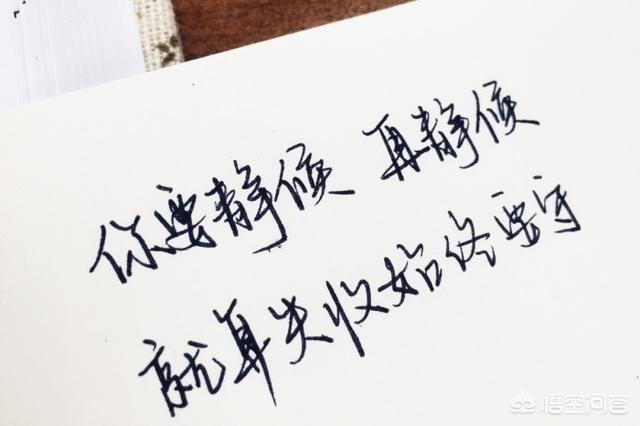 你要静候 再静候
就算失收始终要守
悟空问答